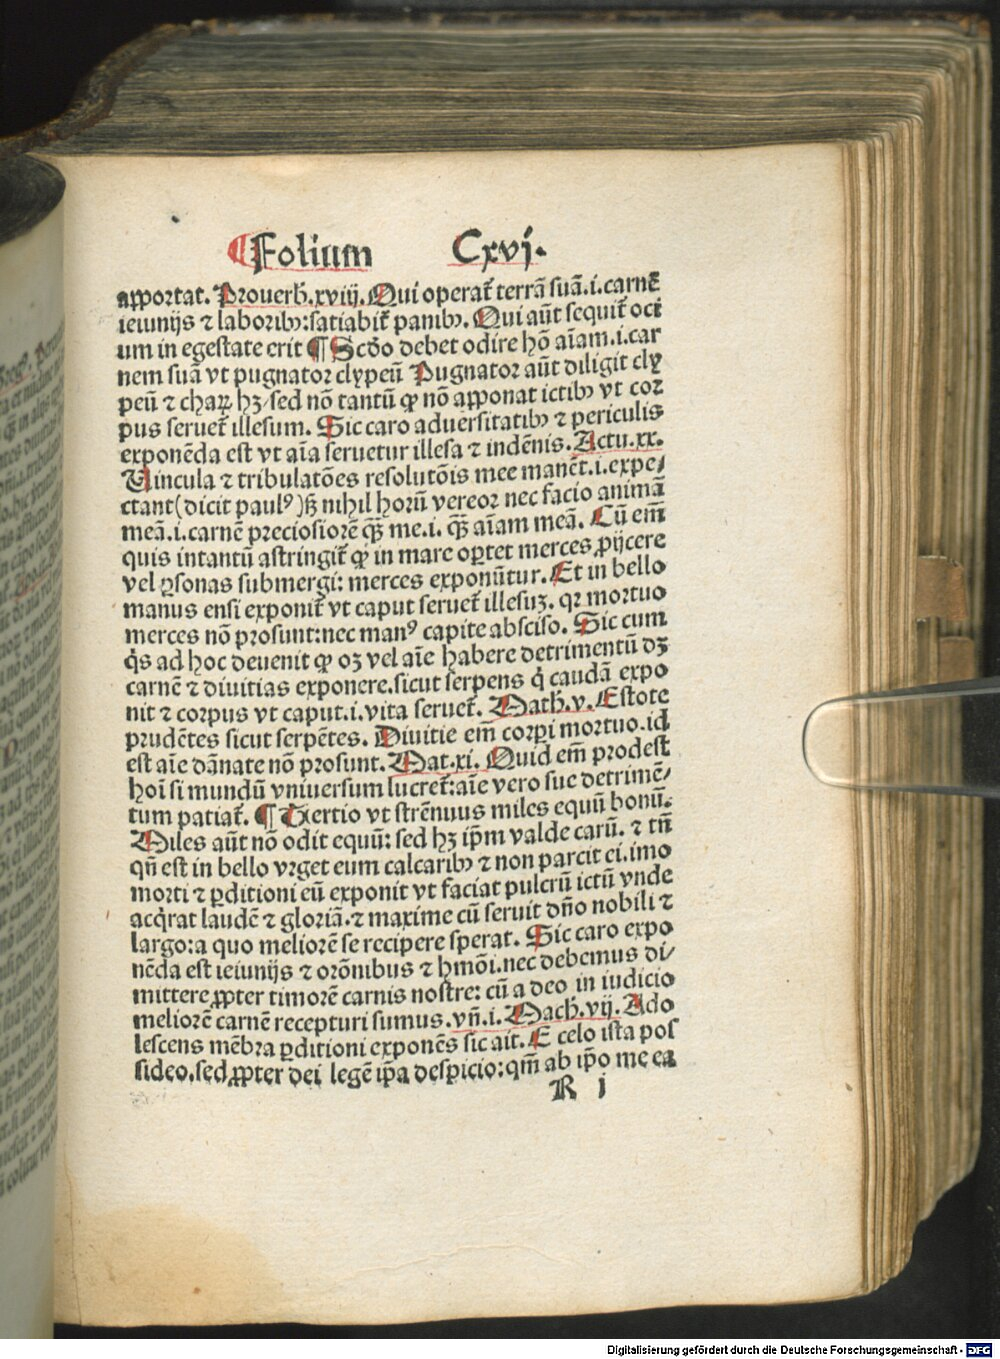 ¶Folium Cxvj.
apportat. Prouerb̄.xviij. Qui operat̄ terrā suā.i.carnē
ieiunijs ⁊ laborib⁹:satiabit̄ panib⁹. Qui aūt sequit̄ oci
um in egestate erit ¶ Scd̄o debet odire hō aīam.i.car
nem suā vt pugnator clypeū Pugnator aūt diligit cly
peū ⁊ charū hꝫ/sed nō tantū ꝙ nō apponat ictib⁹ vt cor
pus seruet̄ illesum. Sic caro aduersitatib⁹ ⁊ periculis
exponēda est vt aīa seruetur illesa ⁊ indēnis. Actu.xx.
Uincula ⁊ tribulatōes resolutōis mee manēt.i.expe/
ctant(dicit paul⁹)ß nihil horū vereor nec facio animā
meā.i.carnē preciosiorē qß me.i. qß aīam meā. Cū em̄
quis intantū astringit̄ ꝙ in mare oꝑtet merces ꝓijcere
vel ꝑsonas submergi: merces exponūtur. Et in bello
manus ensi exponit̄ vt caput seruet̄ illesuꝫ. qꝛ mortuo
merces nō prosunt:nec man⁹ capite absciso. Sic cum
q̇s ad hoc deuenit ꝙ oꝫ vel aīe habere detrimentū dꝫ
carnē ⁊ diuitias exponere.sicut serpens q̇ caudā expo
nit ⁊ corpus vt caput.i.vita seruet̄. Math̄.v. Estote
prudētes sicut serpētes. Diuitie em̄ corpi mortuo.id
est aīe dānate nō prosunt. Mat.xi. Quid em̄ prodest
hoī si mundū vniuersum lucret̄:aīe vero sue detrimē/
tum patiat̄. ¶ Tertio vt strēnuus miles equū bonū.
Miles aūt nō odit equū: sed hꝫ ip̄m valde carū. ⁊ tn̄
qn̄ est in bello vrget eum calcarib⁹ ⁊ non parcit ei.imo
morti ⁊ ꝑditioni eū exponit vt faciat pulcrū ictū vnde
acq̇rat laudē ⁊ gloriā.⁊ maxime cū seruit dn̄o nobili ⁊
largo:a quo meliorē se recipere sperat. Sic caro expo
nēda est ieiunijs ⁊ orōnibus ⁊ hmōi.nec debemus di/
mittere ꝓpter timorē carnis nostre: cū a deo in iudicio
meliorē carnē recepturi sumus.vn̄.i. Mach̄.vij. Ado
lescens mēbra ꝑditioni exponēs sic ait. E celo ista pos
sideo.sed ꝓpter dei legē ip̄a despicio:qm̄ ab ip̄o me ea
R i
Digitalisierung gefördert durch die Deutsche Forschungsgemeinschaft - DFG